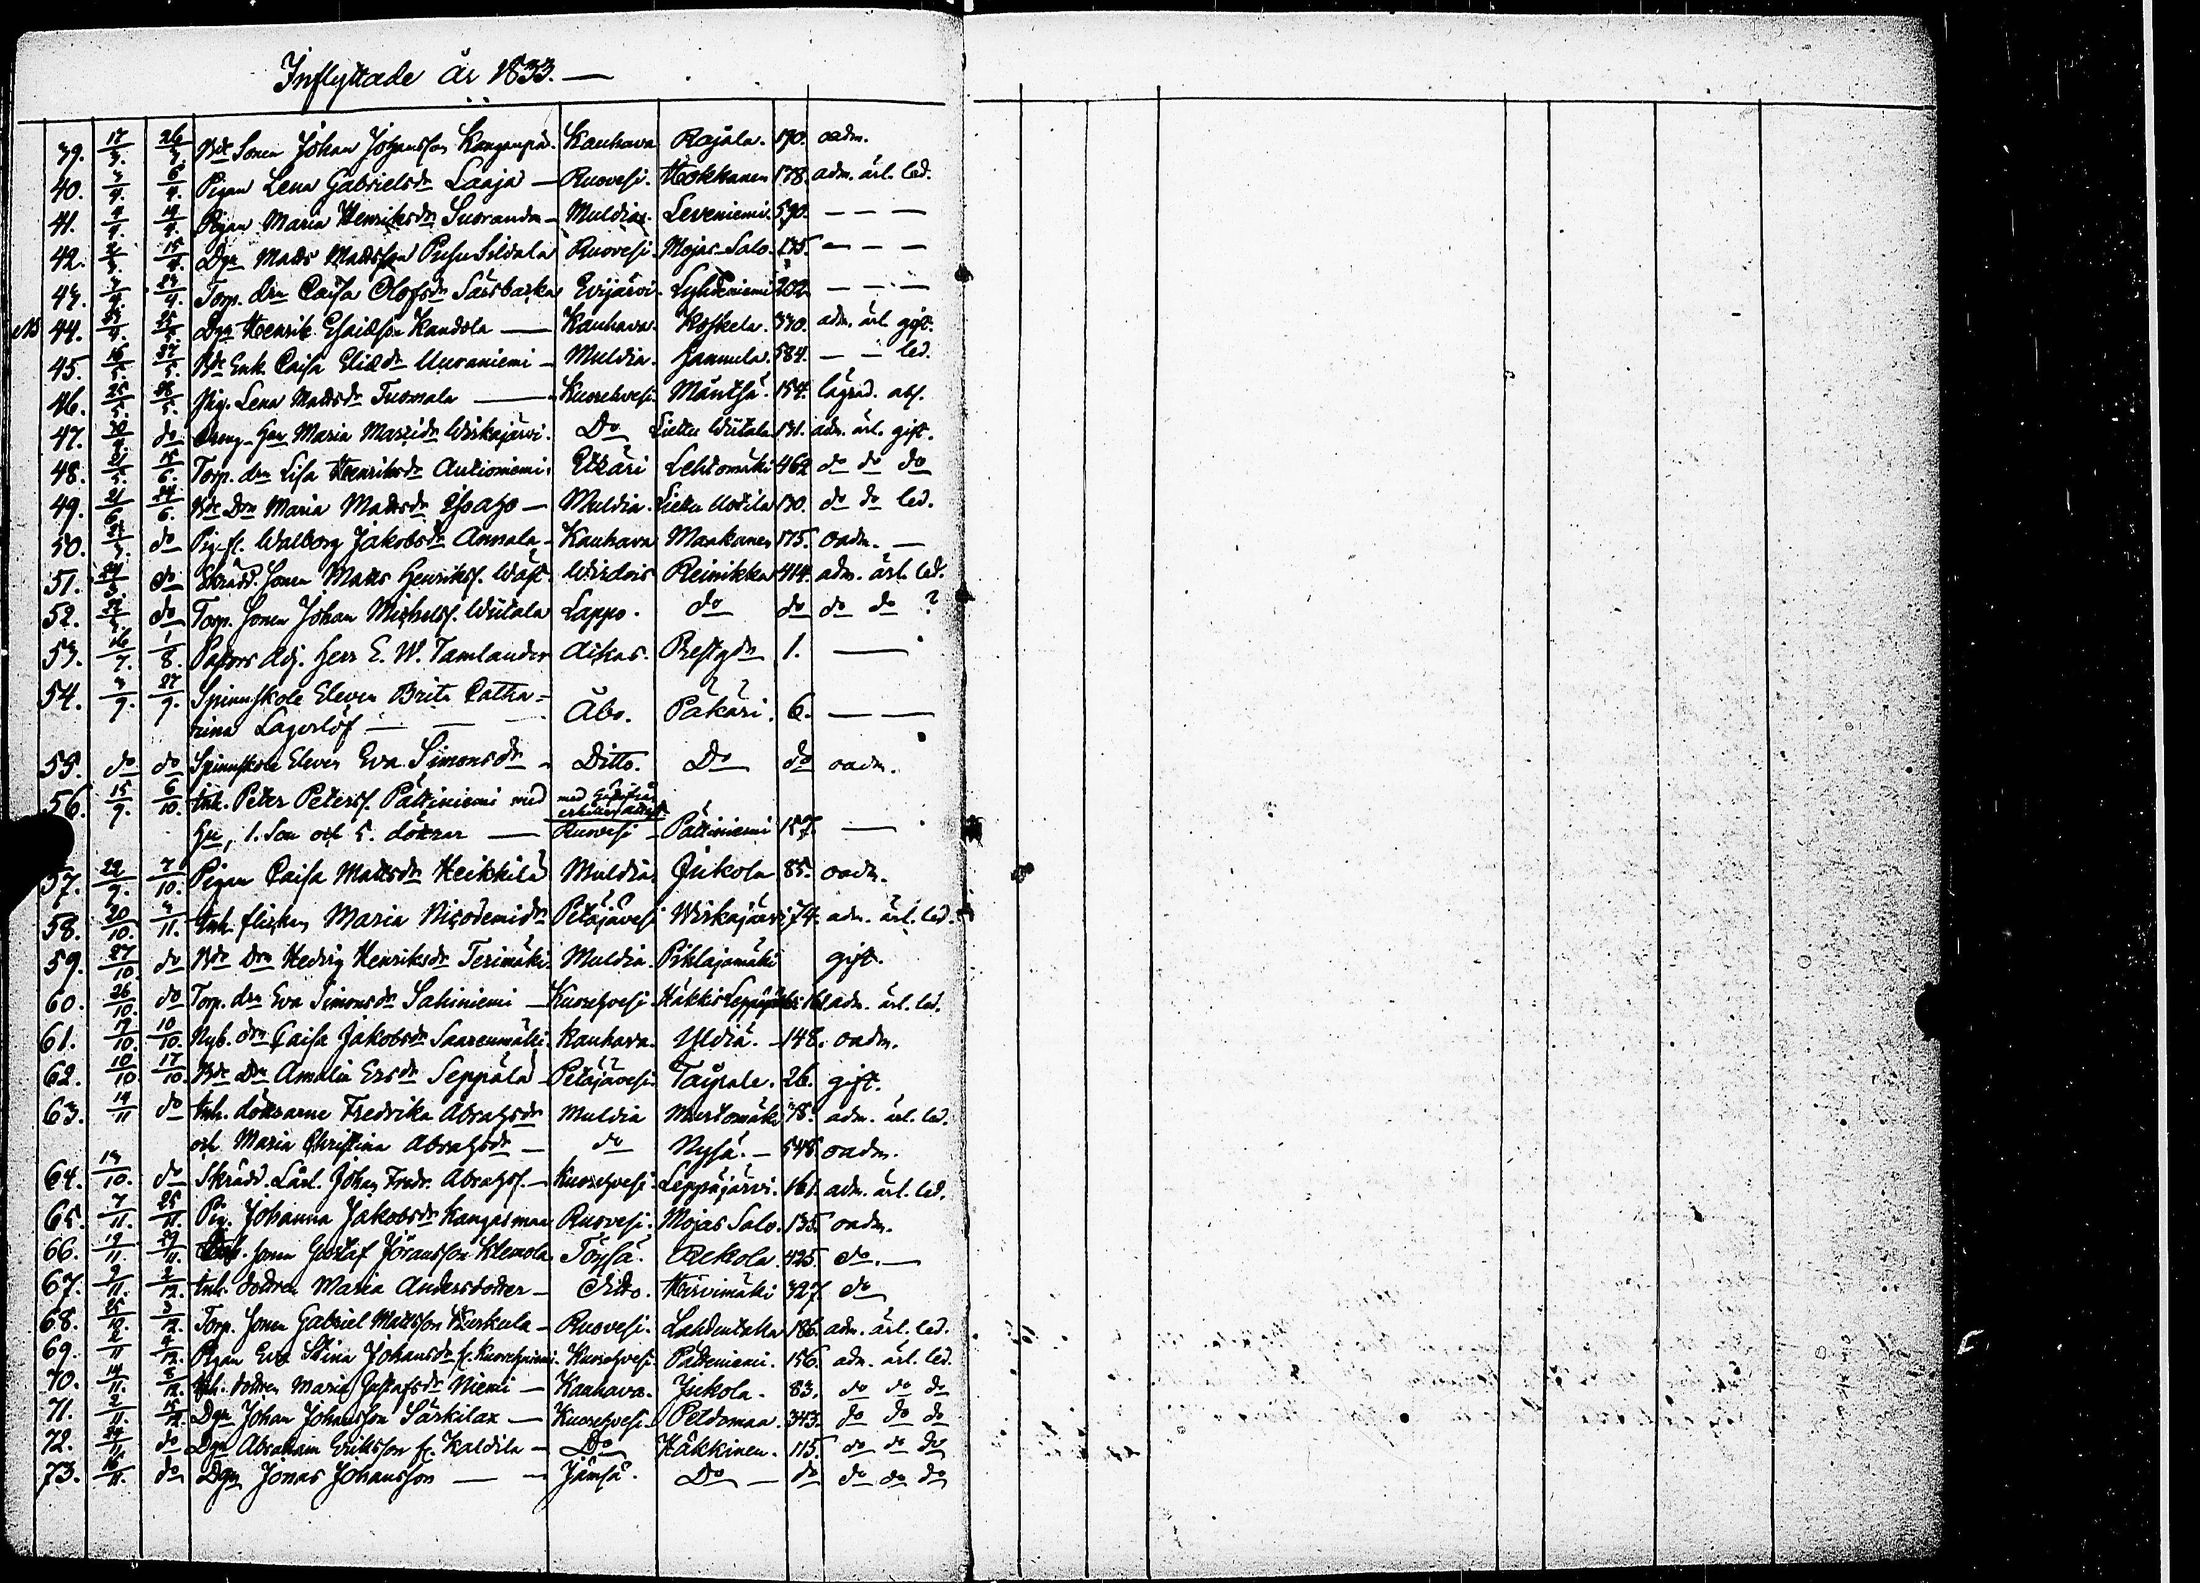 Inflyttade år 1833. —
39. 17/3. 26/3. Bde Sonen Johan Johansson Kanganpä. Kauhava Rajala. 190. oadm.
40. 3/4. 6/4. Pigan Lena Gabrielsdr Laaja — Ruovesi. Hokkanen 178. adm. ärl. led.
41. 4/4. 14/4. Pigan Maria Henriksdr Suoranda — Muldia. Leveniemi. 590. — — —
42. 2/3. 15/4. Dgn Matts Mattsson Ruovesi. Mojas Salo. 135. — — —
43. 3/4. 23/4. Torp. drn Caisa Olofsdr Evijärvi. Lyhdeniemi 202. — — —
44. 25/5. Dgn Henrik Esaiasson Kandola — Kauhava. Koskela. 330. adm. ärl. gift.
45. 16/5. 27/5. Bde Enk. Caisa Eliædr Uuraniemi — Muldia. Hannula. 584. — — led.
46. 25/5. 28/5. Pig. Lena Mattsdr Tuomala — Kuorehvesi. Mäntsä. 154. lägrad. abs.
47. 30/4. do Dreng-Hu Maria Mattsdr Wirkajärvi. Do Liettu Wiitala 131. adm. ärl. gift.
48. 21/5. 15/6. Torp. drn Lisa Henriksdr Autioniemi. Etsäri Lehtomäki 462 do do do
49. 21/6. 24/6. Bde Drn Maria Mattsdr — Muldia. Liettu 130. do do led.
50. do Pig-fl. Walborg Jakobsdr Annala — Kauhava Maakanen 175. oadm. —
51. do Skrädd. Sonen Matts Henrikss. Wäst. Wirdois Reinikka 414. adm. ärl. led.
52. do Torp. Sonen Johan Michelss. Wiitala Lappo. do do do do ?
53. 16/7. 1/8. Pastors Adj. Herr E. W. Tamlander Aitas. Prestgdn 1. —
54. 3/9. 27/9. Spinnskole Eleven Brita Catha=
rina Lagerlöf — — — Åbo. Päkäri. 6. — —
55. do do Spinnskole Eleven Eva Simonsdr — Ditto. Do do oadm.
56. 15/9. 6/10. Inh. Peter Peterss. Pättiniemi med
Hu, 1. Son och 5. döttrar — Ruovesi — Pättiniemi 157. —
57. 22/9. 7/10. Pigan Caisa Mattsdr Heikkilä Muldia. Jukola 85. oadm.
58. 20/10. 3/11. Inh. flickan Maria Nicodemidr Petäjävesi Wirkajärvi 74. adm. ärl. led.
59. 27/10 do Bde Drn Hedvig Henriksdr Terimäki. Muldia. Pihlajamäki gift.
60. 26/10. do Torp. drn Eva Simonsdr Saliniemi — Kuorehvesi. Häkkis 161 adm. ärl. led.
61. 17/10. 10/10. Nyb. drn Caisa Jakobsdr Saarenmäki. Kauhava. Yldiä. — 148. oadm.
62. 10/10 17/10. Bde Drn Amalia Ersdr Seppälä — Petäjävesi. Taipale. 26. gift.
63. 14/11 do Inh. döttrarne Fredrika Abrahsdr Muldia 78. adm. ärl. led.
och Maria Christina Abrahsdr — do Nysä. — 548. oadm.
64. 13/10. do Skrädd. Lärl. Johan Fredr. Abrahss. — Kuorehvesi. Leppäjärvi. 161. adm. ärl. led.
65. 7/11. 25/11. Pig. Johanna Jakobsdr Kangasmaa Ruovesi. Mojas Salo. 135. oadm.
66. 19/11 29/11. Sonen Gustaf Göransson Klemola Töysä. Rekola. 425. do. —
67. 9/11. 2/12. Inh. dottren Maria Andersdotter — Ditto. Hirvimäki 327. do
68. 25/10. 3/12. Torp. Sonen Gabriel Mattsson Kurkula — Ruovesi. Lahdentaka 186. adm. ärl. led.
69. 2/11 4/12. Pigan Eva Stina Johansdr fr. Kuorehniemi. Kuorehvesi. Pätteniemi. 156. adm. ärl. led.
70. 14/11. 8/12. Inh. dottren Maria Gustafsdr Niemi — Kauhava. Jukola. 83. do do do
71. 2/11. 15/12. Dgn Johan Johansson Särkilax — Kuorehvesi. Peldomaa. 343. do do do
72. 24/11 do Dgn Abraham Eriksson fr. Kaldila — Do Häkkinen. 115. do do do
73. 16/11. do Dgn Jonas Johansson — — Jämsä. Do — do do do do